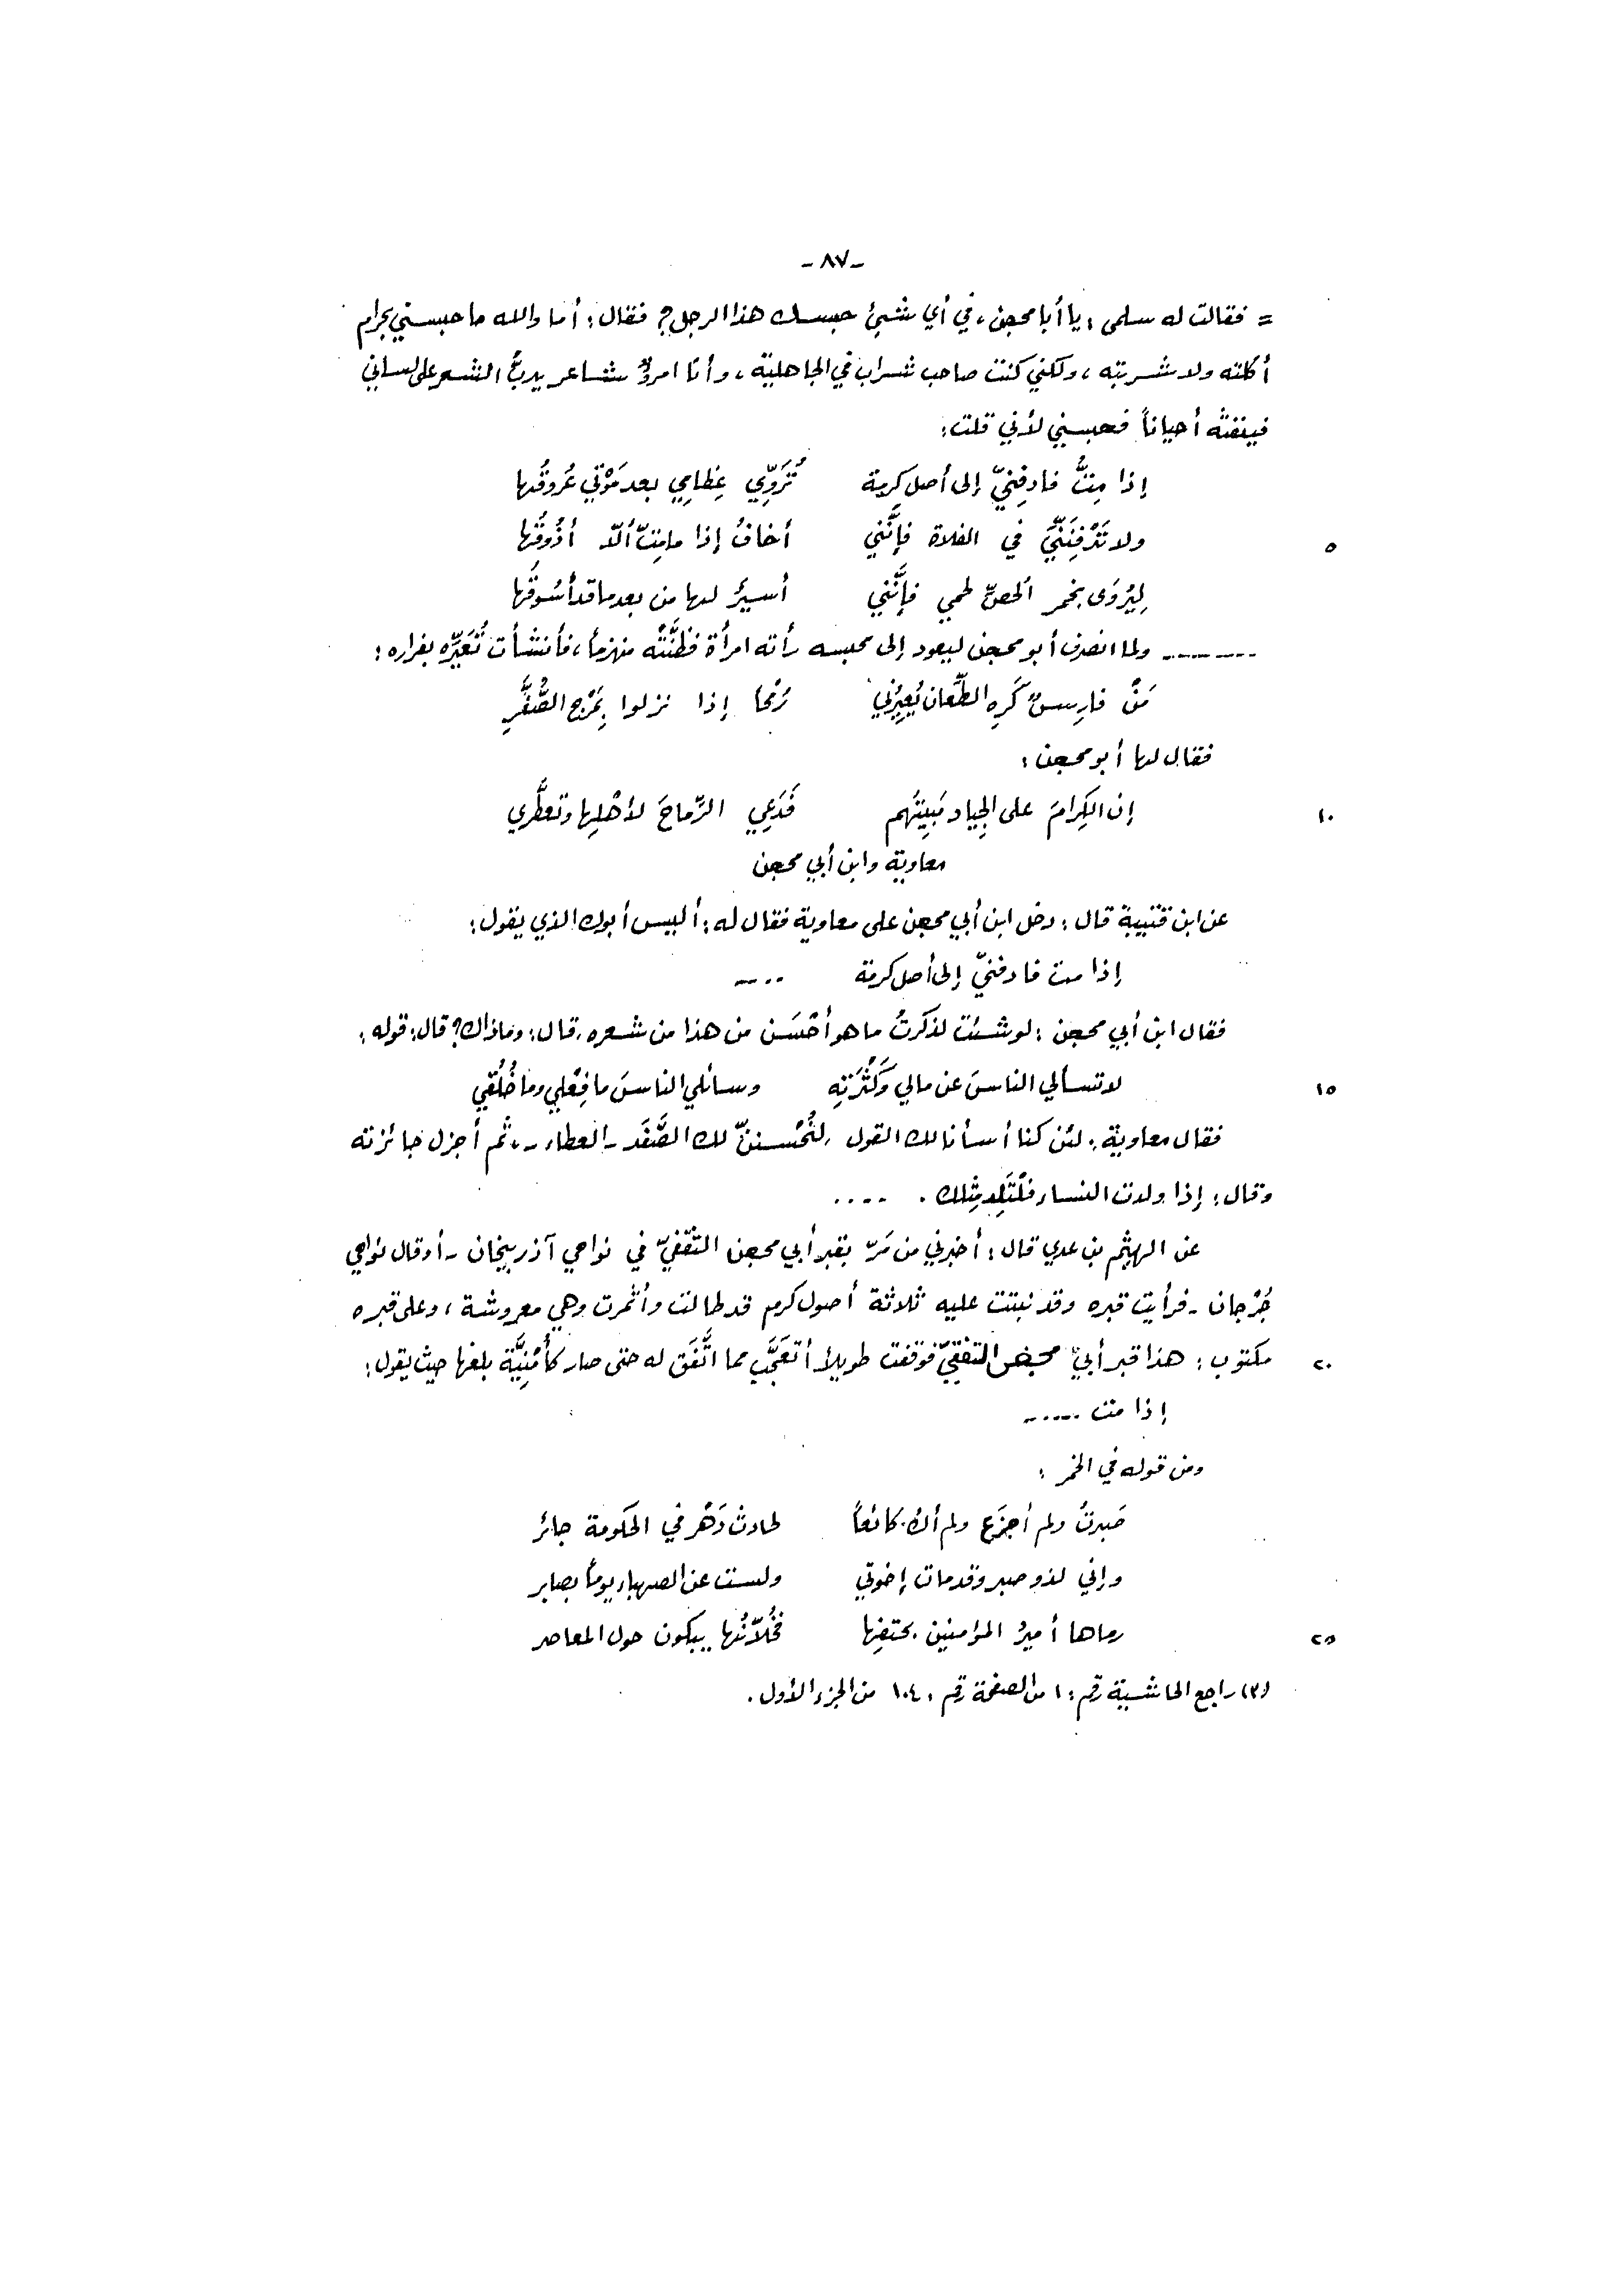 -٨٧-
= فقالت له سلمى: يا أبا محجن، في أي شيئ حبسك هذا الرجل؟ فقال: أما والله ما حبسني بحرام
أكلته ولا شربته، ولكني كنت صاحب شراب في الجاهلية، وأنا امرؤٌ شاعر يدبُّ الشعر على لساني
فينفثه أحياناً فحبسني لأني قلت:
إذا مِتُّ فادفِنِيّ إلى أصل كرمة تُرَوِّي عِظامِي بعد مَوْتي عُروقُها
٥ ولا تَدْفِنَنِّيَ في الفلاة فإنَّني أخافُ إذا مامِتّ ألّا أذُوقُها
لِيُرْوَى بخمر الحصّ لحمي فإنَّني أسيرُ لها من بعد ما قد أسُوقُها
-------- ولما انصرف أبو محجن ليعود إلى محبسه رأته امرأة فظنَّتْه منهزماً، فأنشأت تُعَيِّرُه بفراره:
مَنْ فارِسٌ كَرِه الطِّعان يُعِيرُني رُمْحًا إذا نزلوا بِمَرْجِ الصُّفَّرِ
فقال لها أبو محجن:
١٠ إن الكِرامَ على الجِياد مَبِيتُهم فَدَعِي الرِّماحَ لأهْلِها وتعطَّري
معاوية وابن أبي محجن
عن ابن قتيبة قال: دخل ابن أبي محجن على معاوية فقال له: أليس أبوك الذي يقول:
إذا مت فادفنيّ إلى أصل كرمة ....
فقال ابن أبي محجن: لو شئت لذكرتُ ما هو أحْسَن من هذا من شعره، قال: وماذاك؟ قال: قوله:
١٥ لا تسألي الناسَ عن مالي وَكَثْرَتِهِ وسائلي الناسَ ما فِعْلي وما خُلُقي
فقال معاوية: لئن كنا أسأنا لك القول، لنُحْسِننّ لك الصَّفَد -العطاء-، ثم أجزل جائزته
وقال: إذا ولدت النساء فلْتَلِد مِثْلك. ....
عن الهيثم بن عدي قال: أخبرني من مَرّ بقبر أبي محجن الثقفيّ في نواحي آذربيجان -أوقال نواحي
جُرْجان- فرأيت قبره وقد نبتت عليه ثلاثة أصول كرم قد طالت وأثمرت وهي معروشة، وعلى قبره
٢٠ مكتوب: هذا قبر أبي محجن الثقفيّ فوقفت طويلاً أتعَجَّب مما اتَّفَق له حتى صار كأُمْنِيَّة بلغها حيث يقول:
إذا مت ......
ومن قوله في الخمر:
صَبرتُ ولم أجزَع ولم أكُ كائعاً لحادث دَهْر في الحكومة جائر
وإني لذو صبر وقد مات إخوتي ولست عن الصهباء يوماً بصابر
٢٥ رماها أميرُ المؤمنين بحتفِها فخُلاّنُها يبكون حول المعاصر
(٣) راجع الحاشية رقم: ١ من الصفحة رقم: ١٠٤ من الجزء الأول.